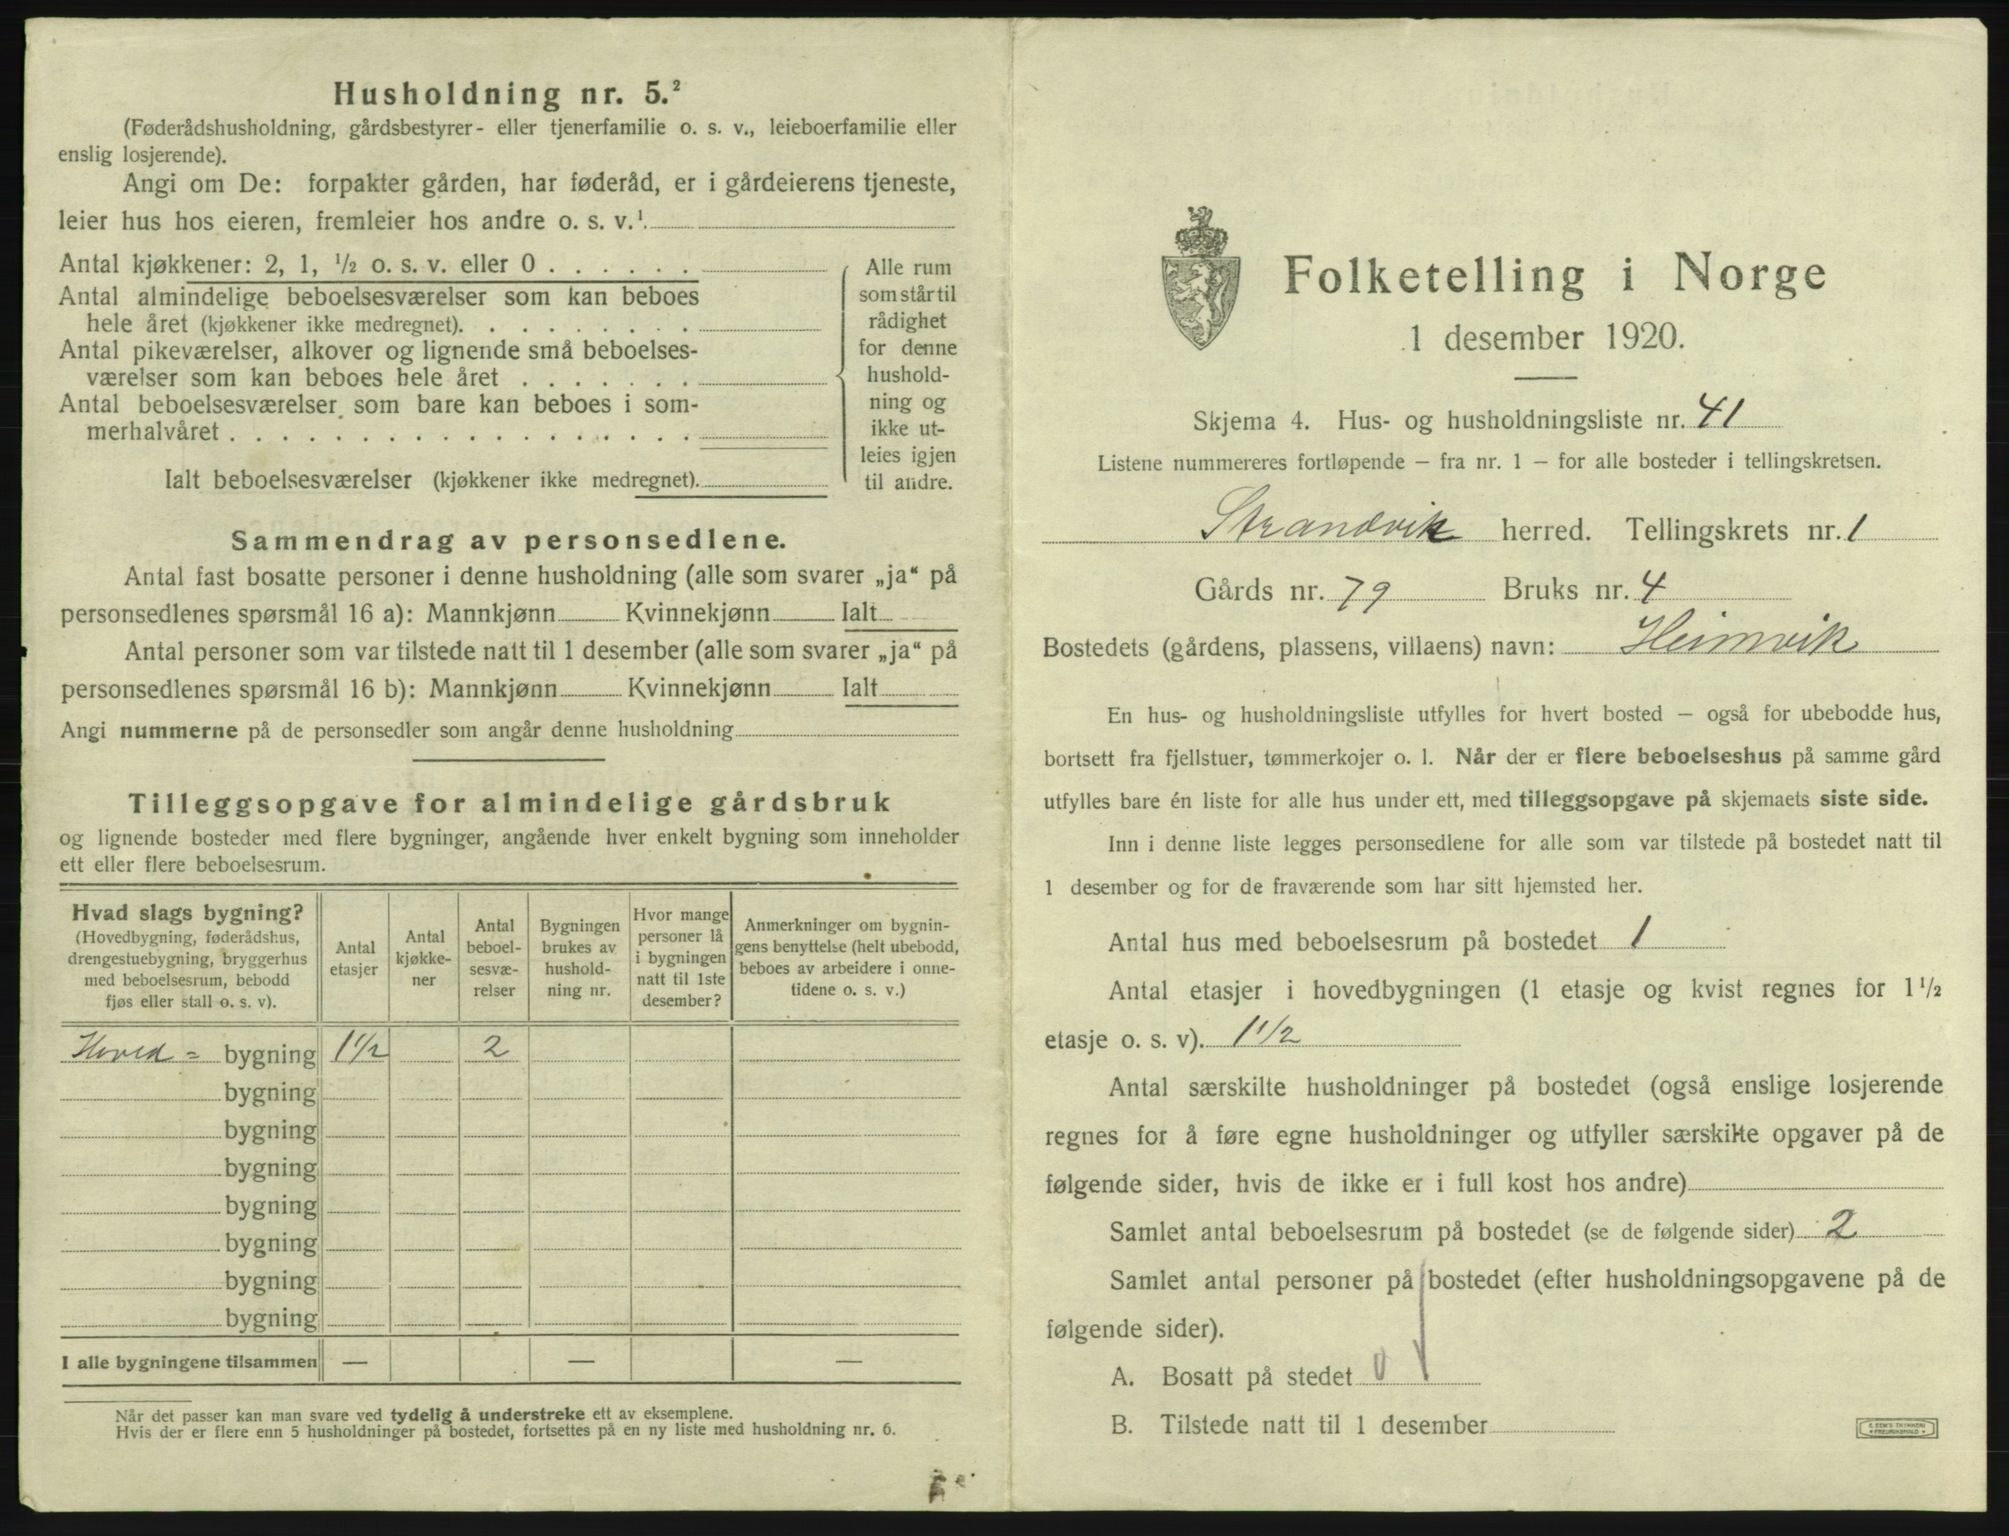 Husholdning nr. 5.²
(Føderådshusholdning, gårdsbestyrer- eller tjenerfamilie o. s. v., leieboerfamilie eller
enslig losjerende).
Angi om De: forpakter gården, har føderåd, er i gårdeierens tjeneste,
leier hus hos eieren, fremleier hos andre o. s. v.¹.
Antal kjøkkener: 2, 1, ½ o. s. v. eller 0 . . . . . .
Antal almindelige beboelsesværelser som kan beboes
hele året (kjøkkener ikke medregnet). . . . . . . . .
Antal pikeværelser, alkover og lignende små beboelses-
værelser som kan beboes hele året . . . . . . .
Antal beboelsesværelser som bare kan beboes i som-
merhalvåret . . . . . . . . . . . . . . . . . .
Ialt beboelsesværelser (kjøkkener ikke medregnet).
Alle rum
som står til
rådighet
for denne
hushold-
ning og
ikke ut-
leies igjen
til andre.
Sammendrag av personsedlene.
Antal fast bosatte personer i denne husholdning (alle som svarer „ja“ på
personsedlenes spørsmål 16 a): Mannkjønn Kvinnekjønn Ialt
Antal personer som var tilstede natt til 1 desember (alle som svarer „ja“ på
personsedlenes spørsmål 16 b): Mannkjønn Kvinnekjønn Ialt
Angi nummerne på de personsedler som angår denne husholdning
Tilleggsopgave for almindelige gårdsbruk
og lignende bosteder med flere bygninger, angående hver enkelt bygning som inneholder
ett eller flere beboelsesrum.
Hvad slags bygning?
(Hovedbygning, føderådshus,
drengestuebygning, bryggerhus
med beboelsesrum, bebodd
fjøs eller stall o. s. v).
Antal
etasjer
Antal
kjøkke-
ner
Antal
beboel-
sesvæ-
relser
Bygningen
brukes av
hushold-
ning nr.
Hvor mange
personer lå
i bygningen
natt til 1ste
desember?
Anmerkninger om bygnin-
gens benyttelse (helt ubebodd,
beboes av arbeidere i onne-
tidene o. s. v.)
Hoved = bygning 1½ 2
bygning
bygning
bygning
bygning
bygning
bygning
bygning
I alle bygningene tilsammen — — —
Når det passer kan man svare ved tydelig å understreke ett av eksemplene.
Hvis der er flere enn 5 husholdninger på bostedet, fortsettes på en ny liste med husholdning nr. 6.
Folketelling i Norge
1 desember 1920.
Skjema 4. Hus- og husholdningsliste nr. 41
Listene nummereres fortløpende – fra nr. 1 – for alle bosteder i tellingskretsen.
Strandvik herred. Tellingskrets nr. 1
Gårds nr. 79 Bruks nr. 4
Bostedets (gårdens, plassens, villaens) navn: Heimvik
En hus- og husholdningsliste utfylles for hvert bosted – også for ubebodde hus,
bortsett fra fjellstuer, tømmerkojer o. l. Når der er flere beboelseshus på samme gård
utfylles bare én liste for alle hus under ett, med tilleggsopgave på skjemaets siste side.
Inn i denne liste legges personsedlene for alle som var tilstede på bostedet natt til
1 desember og for de fraværende som har sitt hjemsted her.
Antal hus med beboelsesrum på bostedet 1
Antal etasjer i hovedbygningen (1 etasje og kvist regnes for 1½
etasje o. s. v). 1½
Antal særskilte husholdninger på bostedet (også enslige losjerende
regnes for å føre egne husholdninger og utfyller særskilte opgaver på de
følgende sider, hvis de ikke er i full kost hos andre)
Samlet antal beboelsesrum på bostedet (se de følgende sider) 2
Samlet antal personer på bostedet (efter husholdningsopgavene på de
følgende sider).
A. Bosatt på stedet 0
B. Tilstede natt til 1 desember